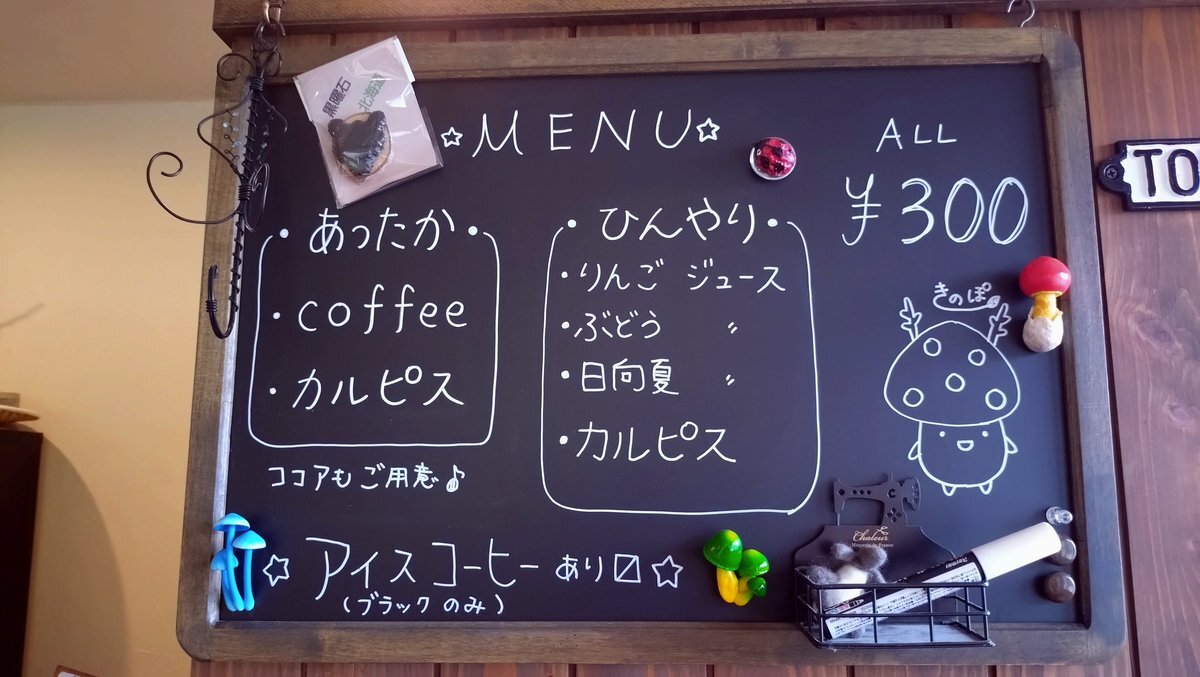 黒曜石
北海道
☆MENU☆
ALL
¥300
・あったか・
・coffee
・カルピス
ココアもご用意♪
・ひんやり・
・りんご ジュース
・ぶどう 〃
・日向夏 〃
・カルピス
きのぽ
☆アイスコーヒーあり〼☆
(ブラックのみ)
Chaleur
TO